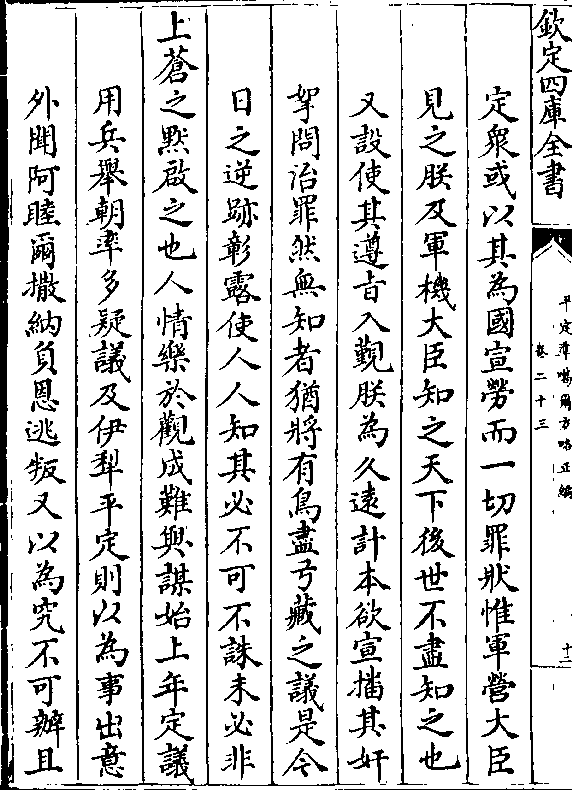 欽定四庫全書
平定準噶爾方略正編
卷二十三
十二
定衆或以其為國宣勞而一切罪狀惟軍營大臣
見之朕及軍機大臣知之天下後世不盡知之也
又設使其遵旨入覲朕為久遠計本欲宣播其奸
拏問治罪然無知者猶將有鳥盡弓藏之議是今
日之逆跡彰露使人人知其必不可不誅未必非
上蒼之黙啟之也人情樂於觀成難與謀始上年定議
用兵舉朝率多疑議及伊犁平定則以為事出意
外聞阿睦爾撒納負恩逃叛又以為究不可辦且